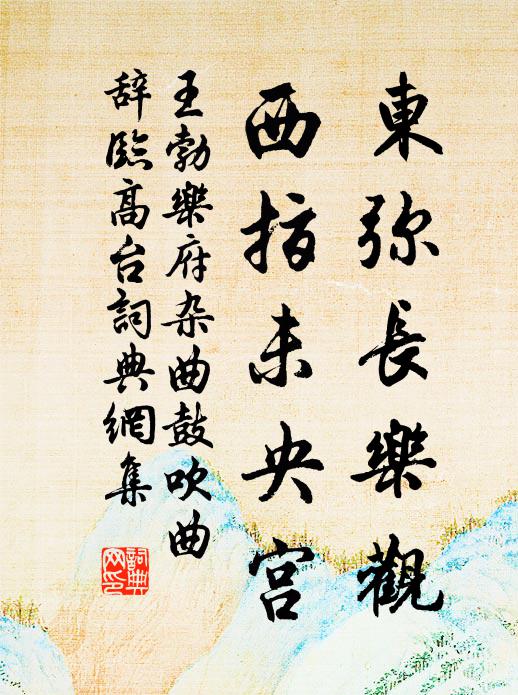 東弥長樂觀
西指未央宫
王勃樂府杂曲鼓吹曲
辞臨高台詞典網集
詞典
网印